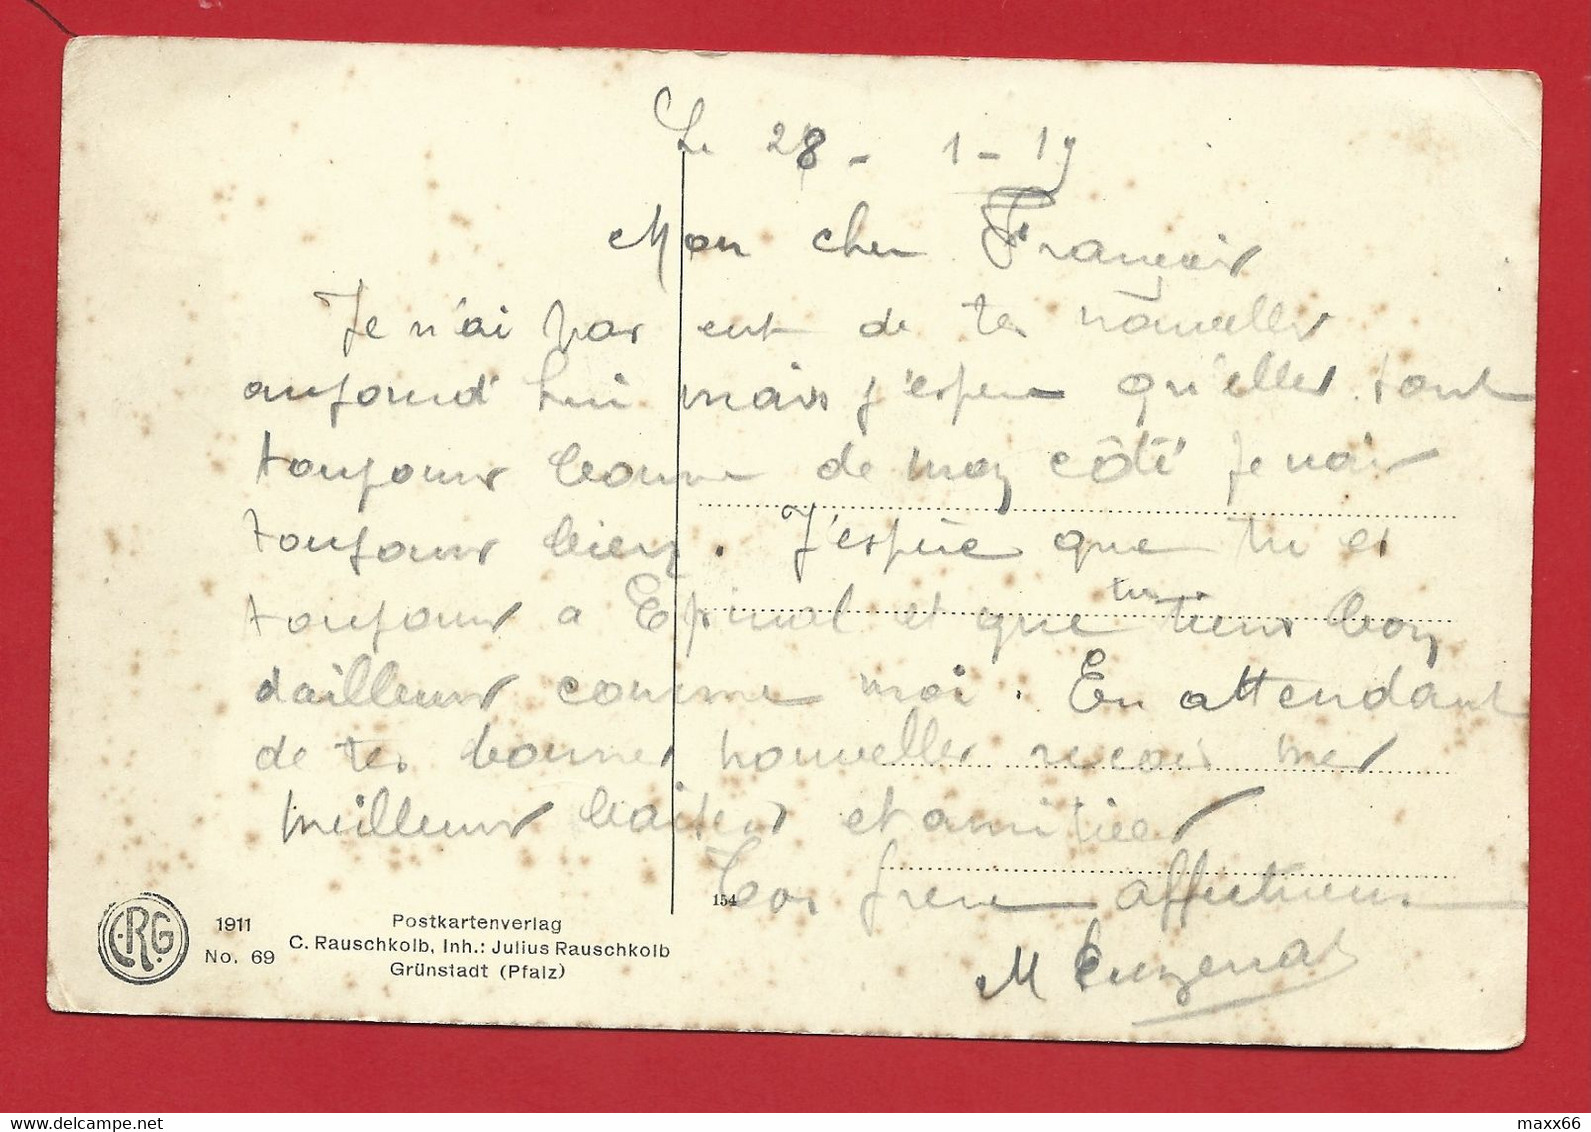 Le 28 - 1 - 19
Mon cher François
Je n'ai pas eut de tes nouvelles
aujourd'hui mais j'espere qu'elles sont
toujours bonne de mon côté je vais
toujours bien. J'espère que tu es
toujours a Epinal et que tu tiens bon
dailleurs comme moi. En attendant
de tes bonnes nouvelles recois mes
meilleurs baisers et amitiées
Ton frere affectueux
M
154
CRG
1911
No. 69
Postkartenverlag
C. Rauschkolb, Inh.: Julius Rauschkolb
Grünstadt (Pfalz)
delcampe.net
maxx66